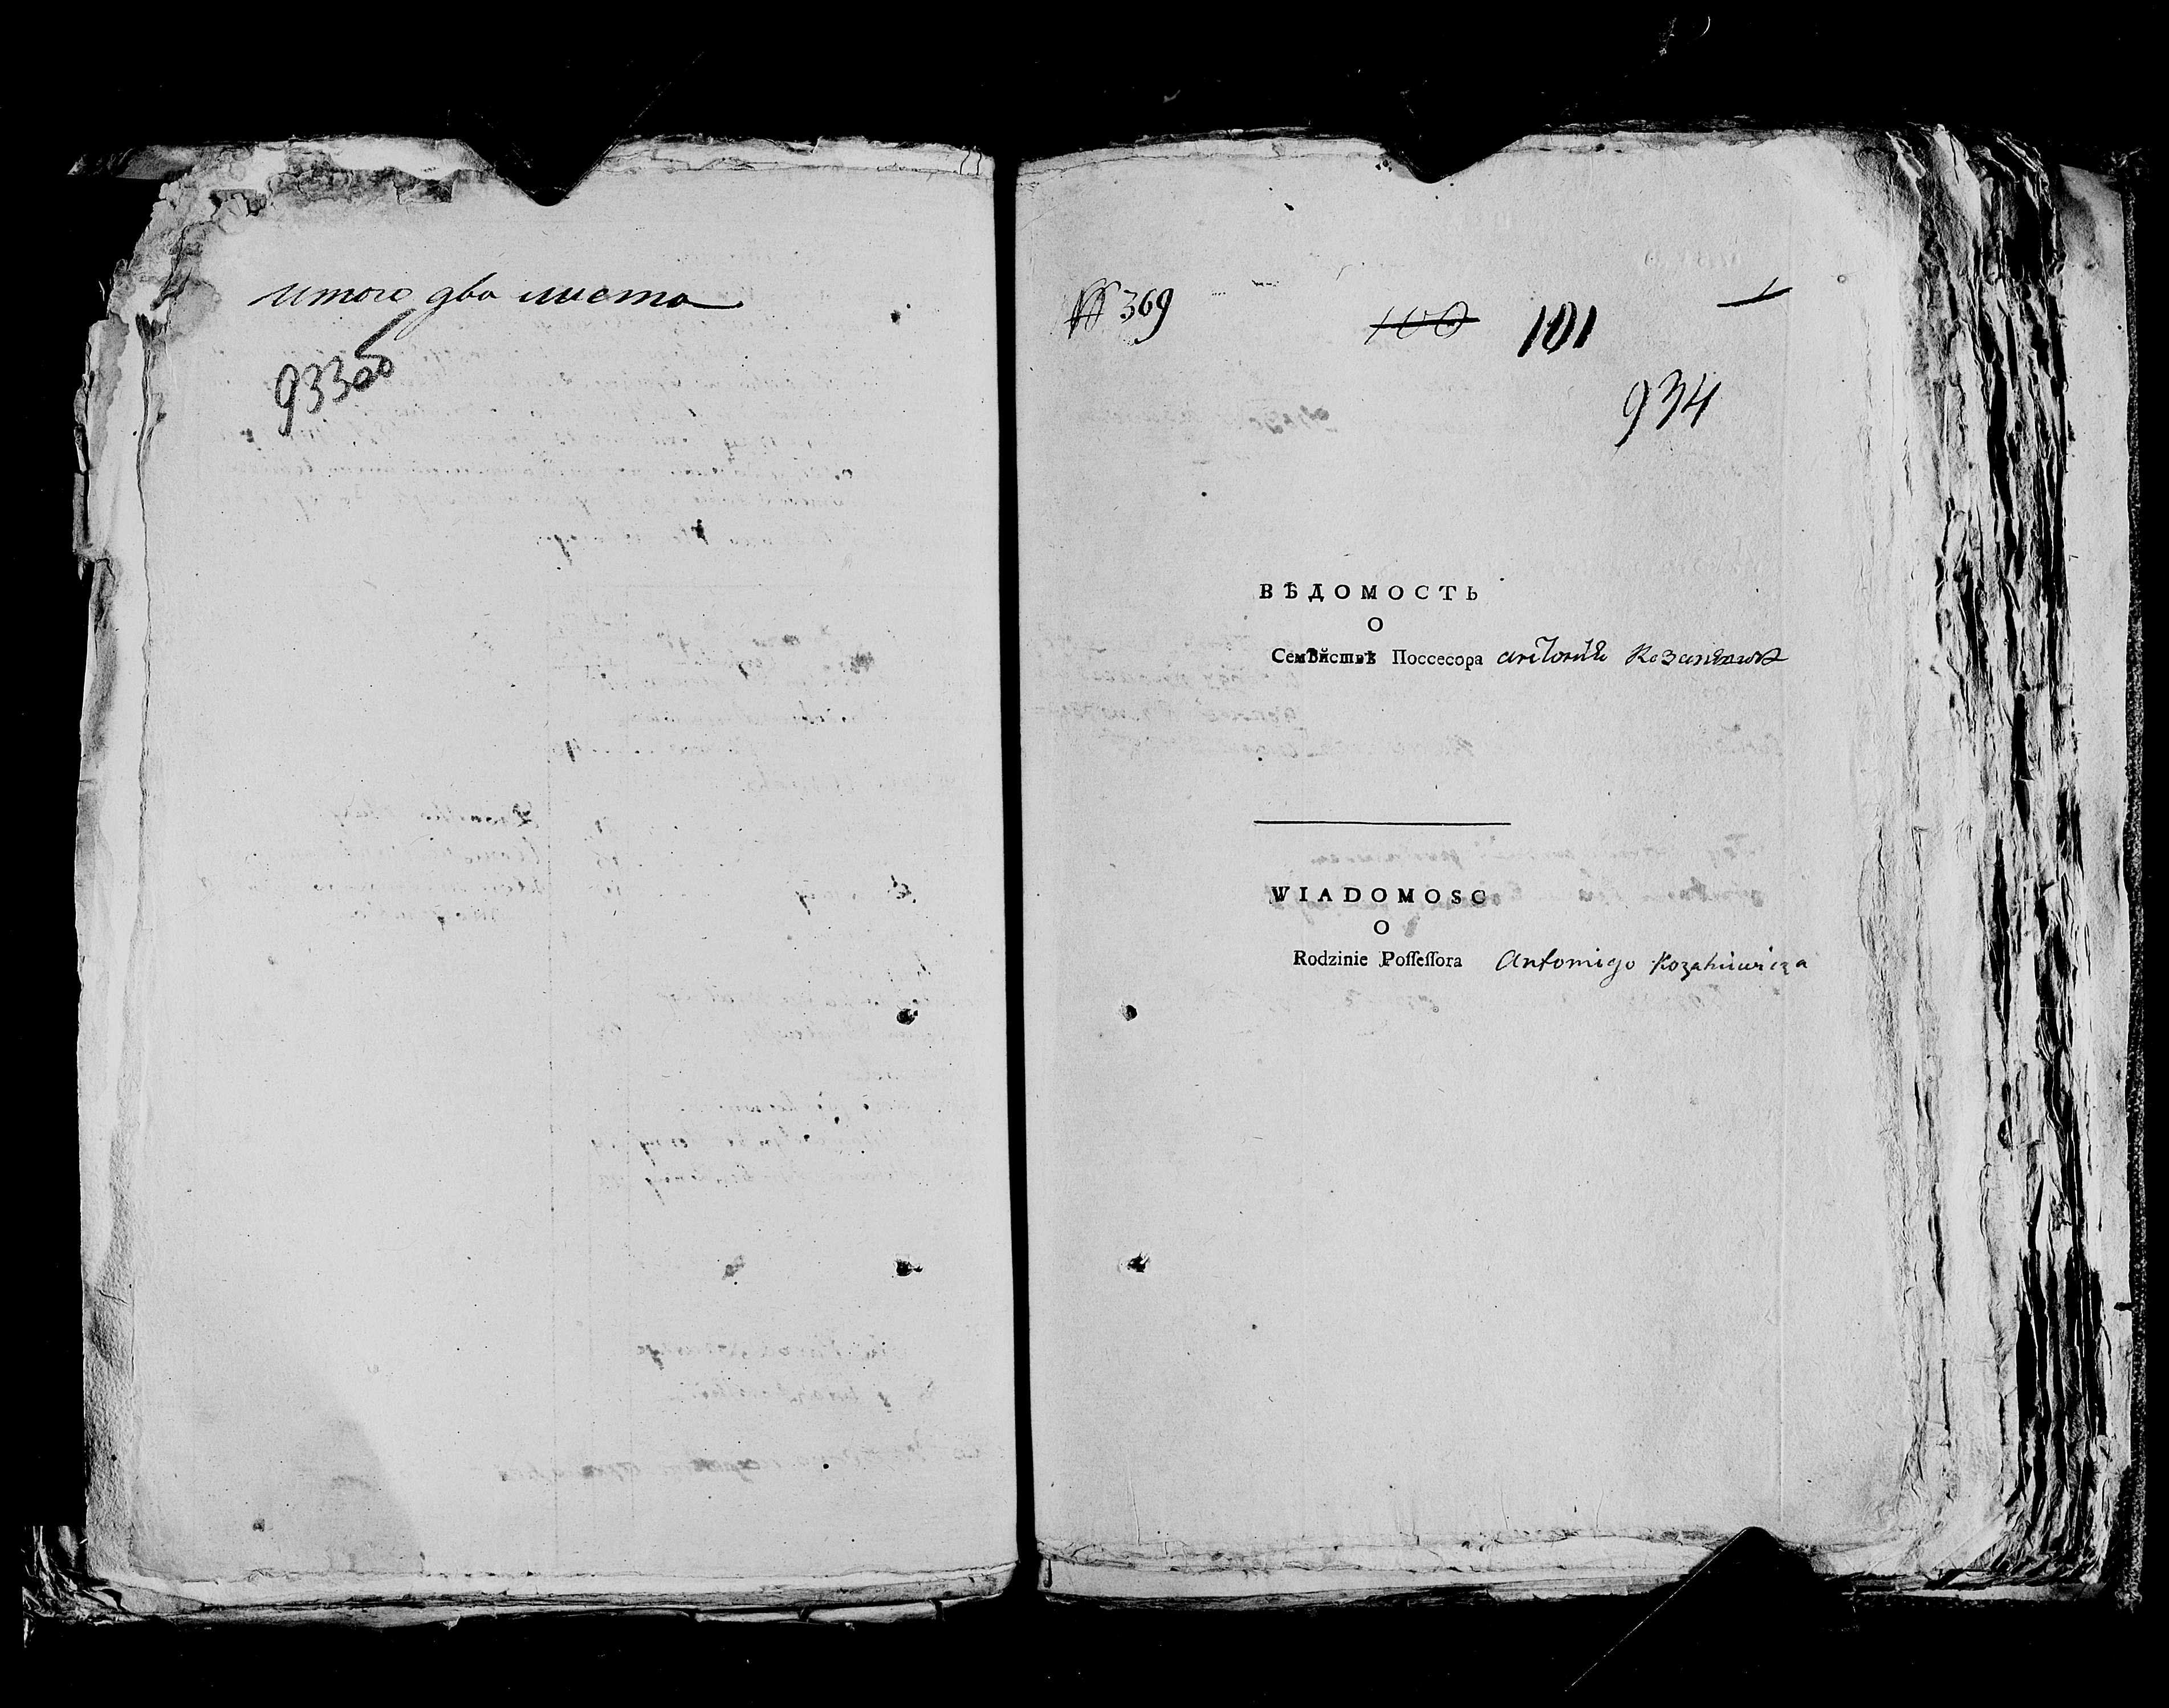 итого два листа
933об
№ 369
100
101
934
ВѢДОМОСТЬ
О
Семѣйствѣ Поссесора
WIADOMOSC
O
Rodzinie Poſſeſſora Antoniego Kozakiewicza